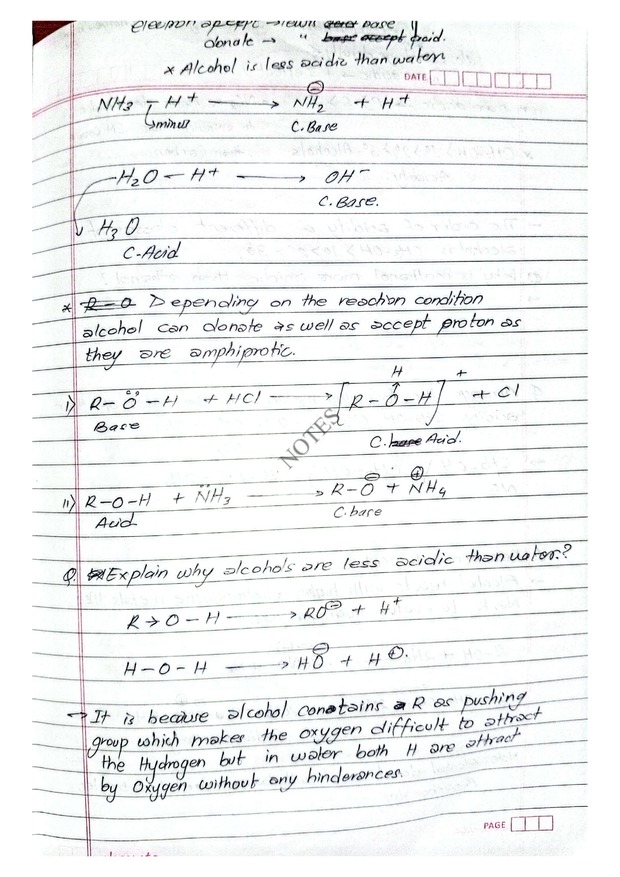 electron accept → lewis base
donate → " acid.
* Alcohol is less acidic than water.
DATE
NH₃ – H⁺ → NH₂⊖ + H⁺
↳minus C.Base
H₂O – H⁺ → OH⁻
C. Base.
H₃O
C-Acid
* R–O Depending on the reaction condition
alcohol can donate as well as accept proton as
they are amphiprotic.
H
i) R–Ö–H + HCl → [R–O–H]⁺ + Cl
Base C. base Acid.
NOTES
ii) R–O–H + N̈H₃ → R–O⊖ + N⊕H₄
Acid C.base
Q. Explain why alcohols are less acidic than water?
R→O–H → RO⊖ + H⁺
H–O–H → HO⊖ + H⊕.
→ It is because alcohol contains a R as pushing
group which makes the oxygen difficult to attract
the Hydrogen but in water both H are attract
by Oxygen without any hinderances.
PAGE